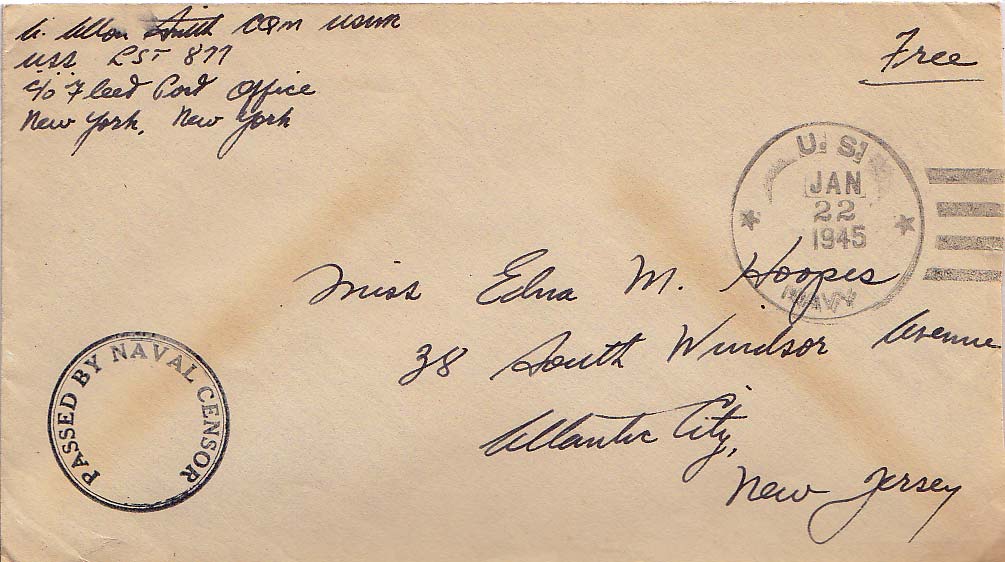 A. Allen Smith CQM USNR
USS LST 877
c/o Fleet Post Office
New York, New York
Free
U. S.
JAN
22
1945
NAVY
Miss Edna M. Hoopes
38 South Windsor Avenue
Atlantic City,
New Jersey
PASSED BY NAVAL CENSOR